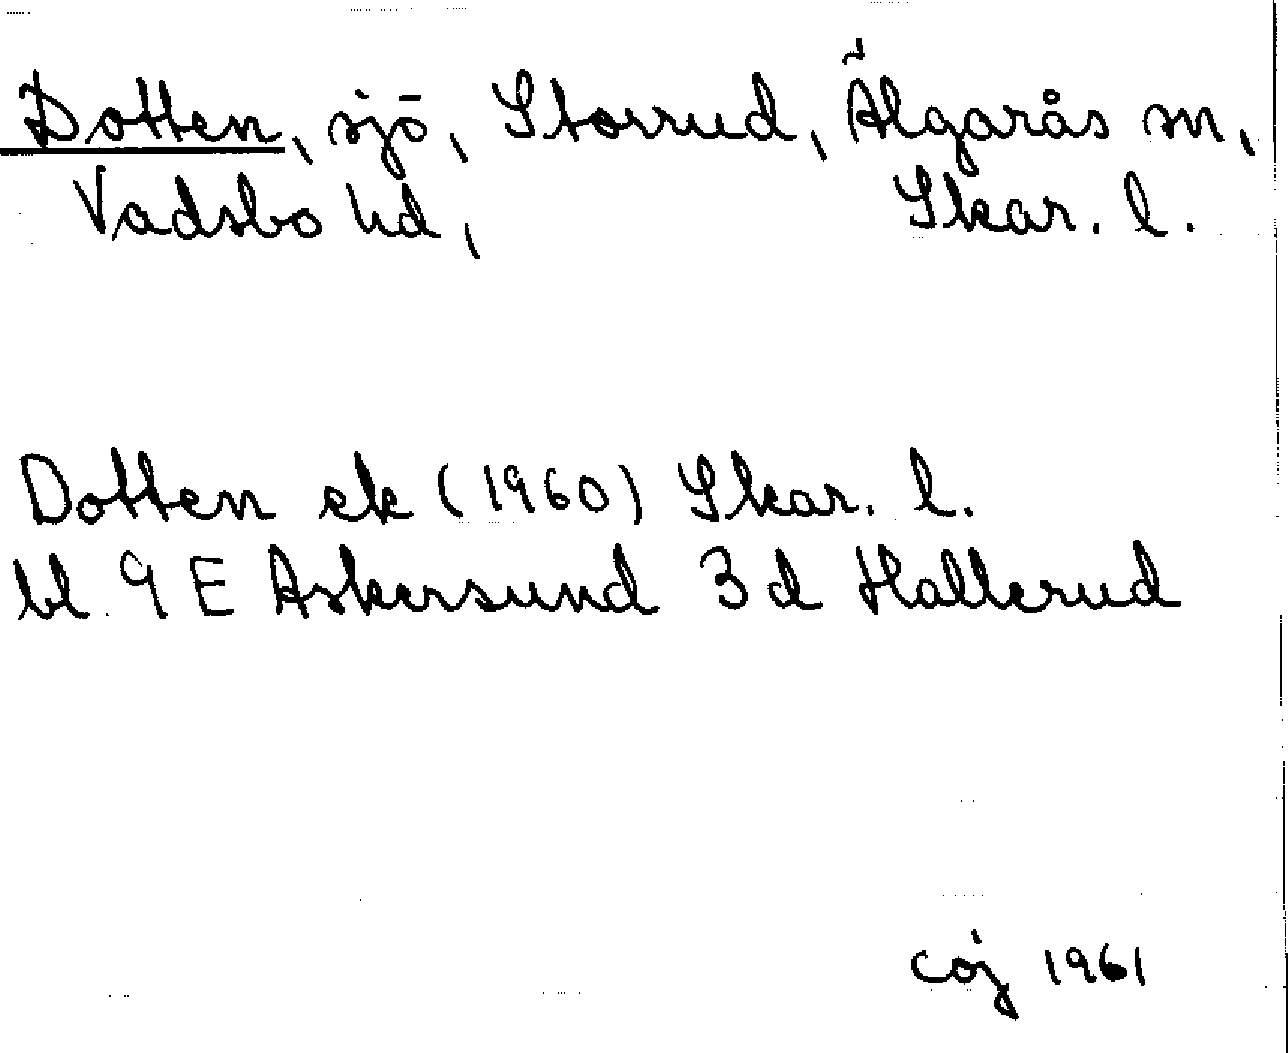 Dotten, sjö, Storrud, Älgarås sn,
Vadsbo hd, Skar. l.
Dotten ek (1960) Skar. l.
bl. 9 E Askersund 3 d Hallerud
coj 1961